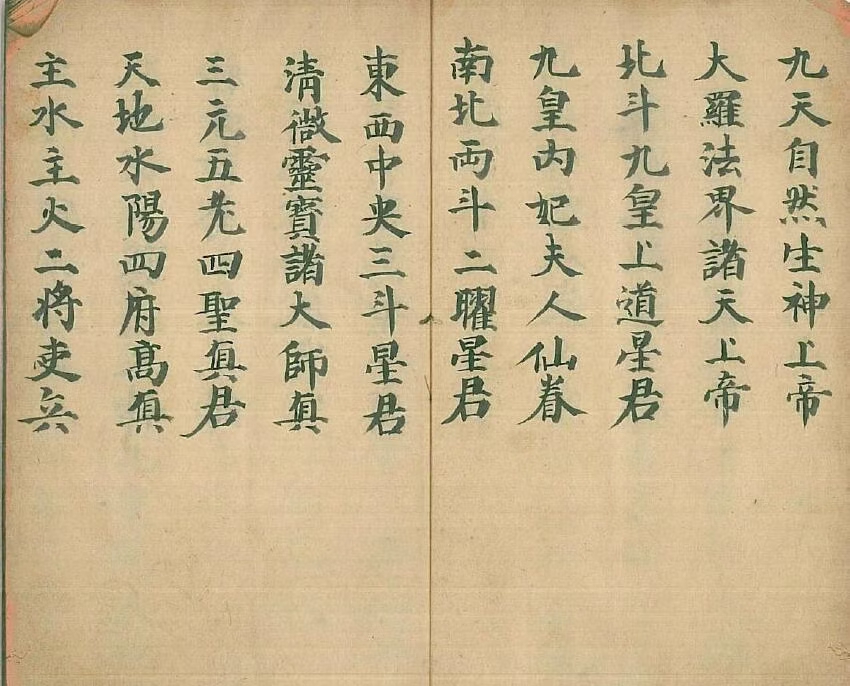 九天自然生神上帝
大羅法界諸天上帝
北斗九皇上道星君
九皇內妃夫人仙眷
南北両斗二曜星君
東西中央三斗星君
清微靈寶諸大師真
三元五老四聖真君
天地水陽四府高真
主水主火二將吏兵